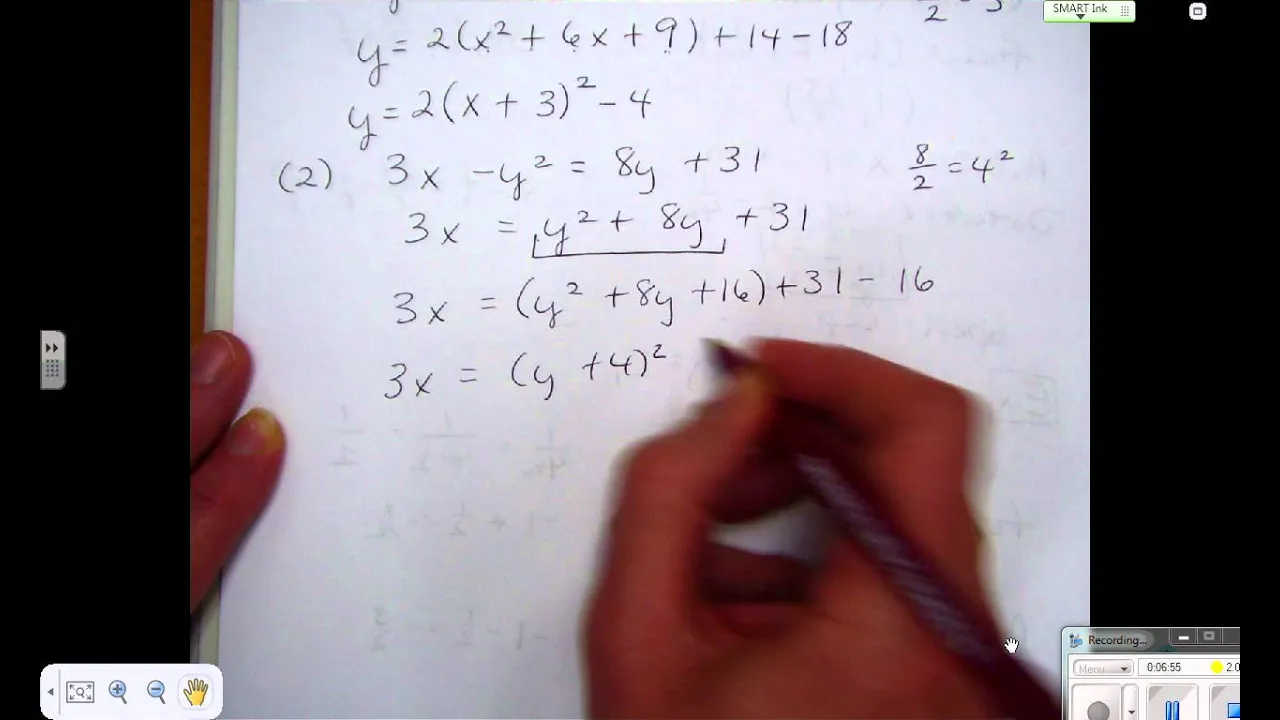 SMART Ink
y = 2(x² + 6x + 9) + 14 - 18
y = 2(x + 3)² - 4
(2) 3x - y² = 8y + 31
8/2 = 4²
3x = y² + 8y + 31
3x = (y² + 8y + 16) + 31 - 16
3x = (y + 4)²
Recording...
Menu
0:06:55
2.0